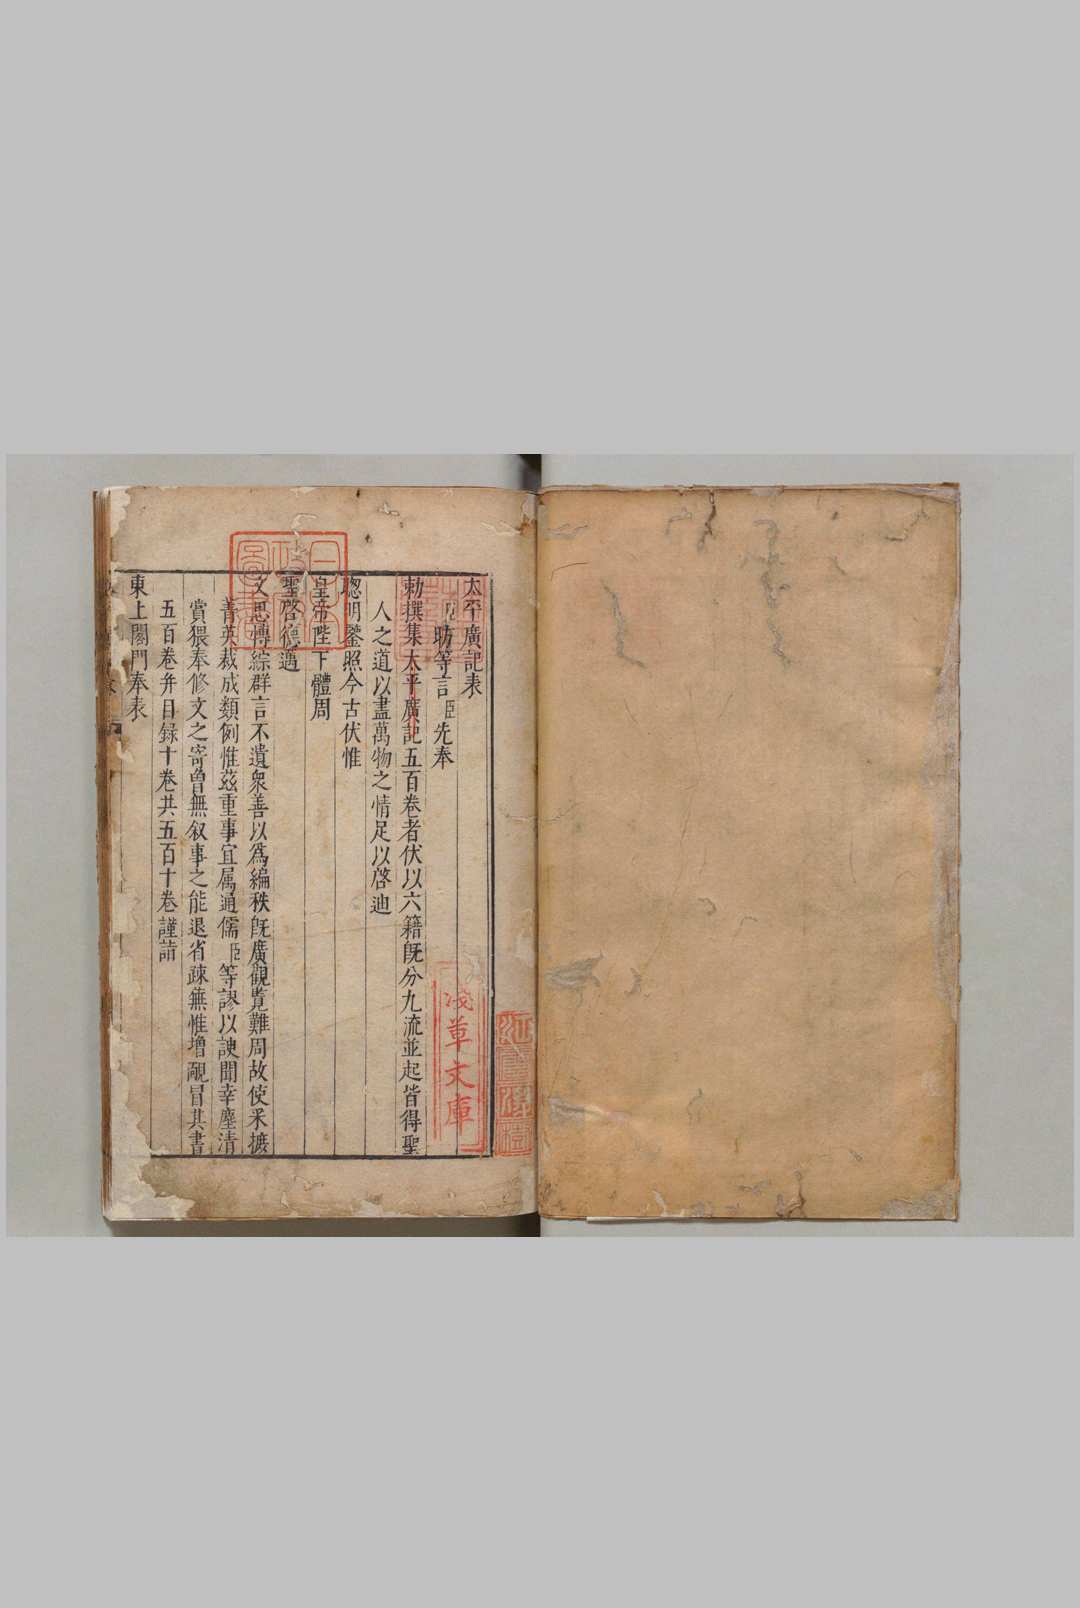 太平廣記表
臣昉等言臣先奉
勅撰集太平廣記五百卷者伏以六籍旣分九流並起皆得聖
人之道以盡萬物之情足以啓迪
聰明鑒照今古伏惟
皇帝陛下體周
聖啓德邁
文思博綜群言不遺衆善以爲編秩旣廣觀覽難周故使采摭
菁英裁成類例惟茲重事宜属通儒臣等謬以諛聞幸塵清
賞猥奉修文之寄曾無叙事之能退省疎蕪惟增靦冒其書
五百卷并目録十卷共五百十卷謹詣
東上閤門奉表
淺草文庫
日本政府圖書